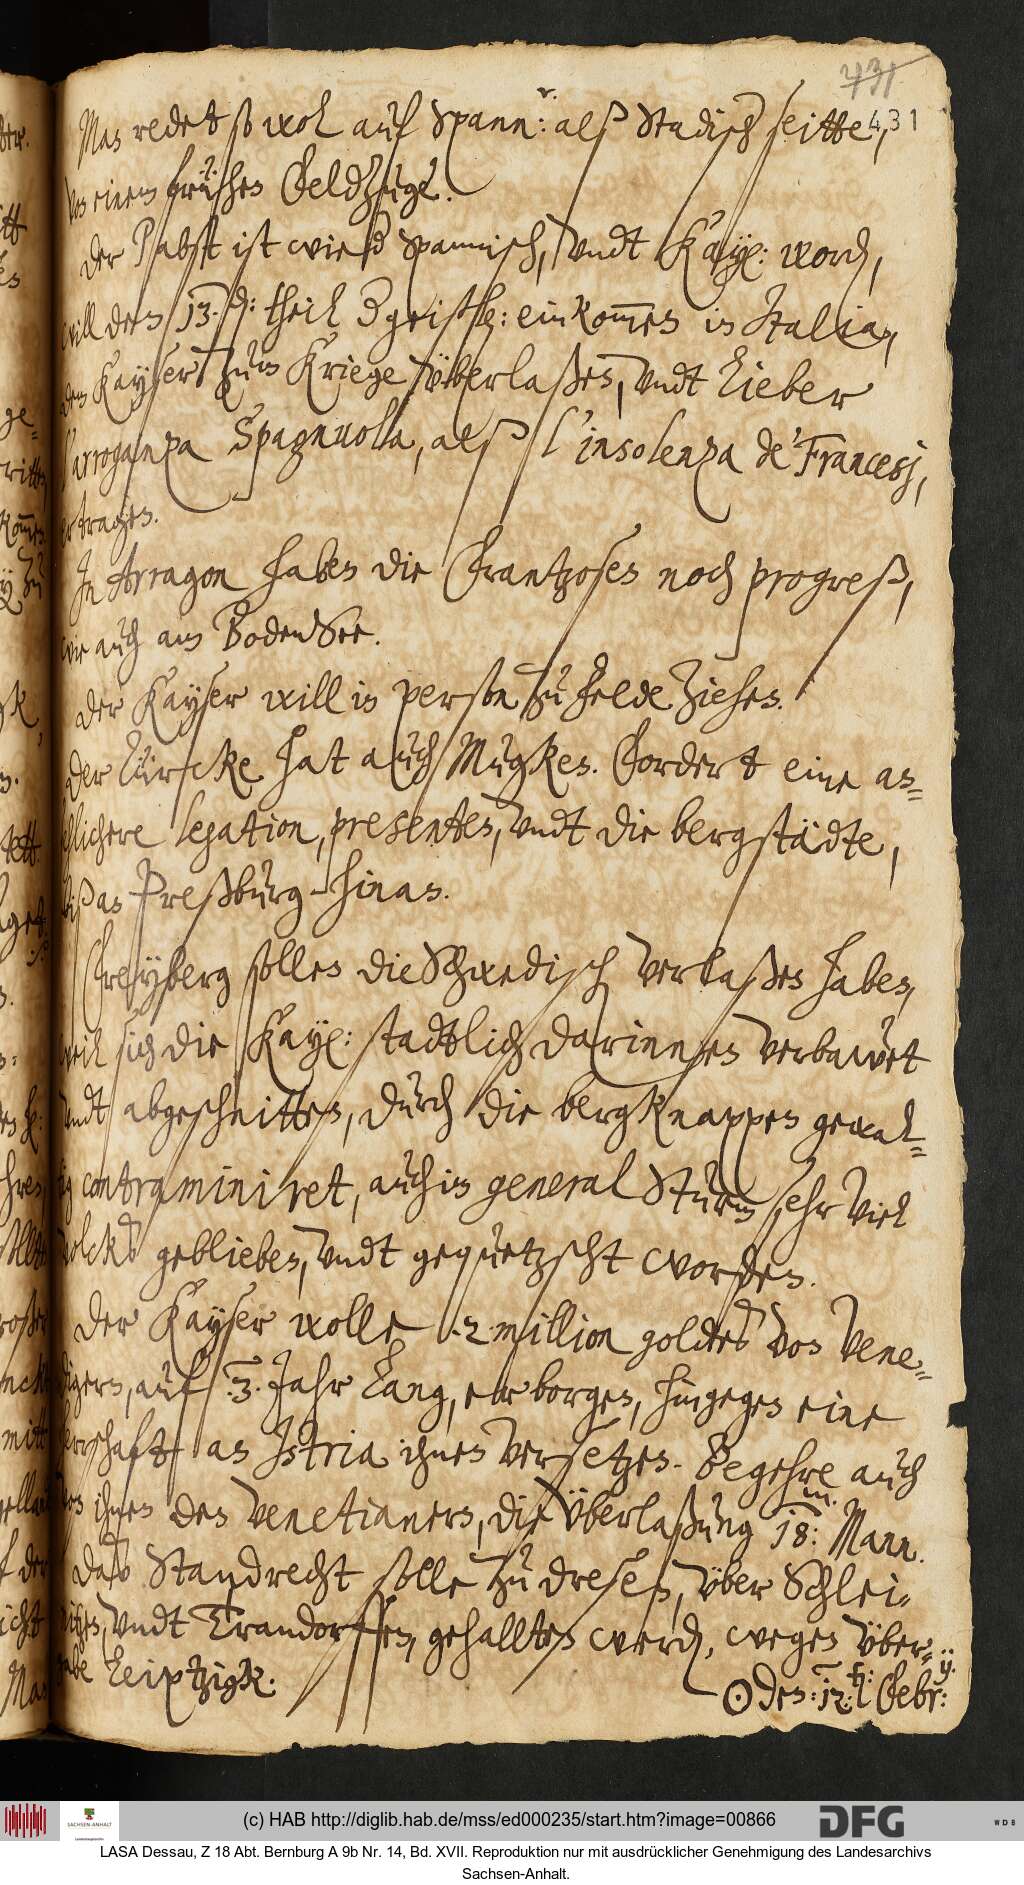 431
431
Man redet so wol auf Spann: alß Stadisch seitte,
von einem frühen Feldzuge.
Der Pabst ist wied Spannisch, vndt Kay: word,
will den 13. d: theil d geistl: einkommen in Italia,
dem Kayser zum Kriege vberlaßen, vndt lieber
l'arroganza Spagnuola, alß l'insolenza de' Francesj,
ertragen.
In Arragon haben die Frantzosen noch progreß,
wie auch am BodenSee.
Der Kayser will in person zu felde ziehen.
Der Türcke hat auch Mugken. Fordert eine an=
sehlichere legation, presenten, vndt die bergstädte,
biß an Preßburg hinan.
Freyberg sollen die Schwedisch verlaßen haben,
weil sich die Kay: stadtlich darinnen verbawet
vndt abgeschnitten, durch die bergknappen gewal=
tig contraminiret, auch im general Sturm sehr viel
volcks geblieben, vndt gequetzscht worden.
Der Kayser wolle .2. million goldes von Vene=
digern, auf .3. Jahr lang, erborgen, hingegen eine
herrschaft an Istria ihnen versetzen. Begehre auch
von ihnen den Venetianern, die Überlaßung 18: m. Mann.
Das Standrecht solle zu dresen, vber Schlei=
nitzen, vndt Trandorffen, gehallten werd, wegen vber=
gabe Leiptzigk.
☉ den: 12: t: Febr: y.
(c) HAB http://diglib.hab.de/mss/ed000235/start.htm?image=00866
DFG
WDB
SACHSEN-ANHALT
LASA Dessau, Z 18 Abt. Bernburg A 9b Nr. 14, Bd. XVII. Reproduktion nur mit ausdrücklicher Genehmigung des Landesarchivs
Sachsen-Anhalt.